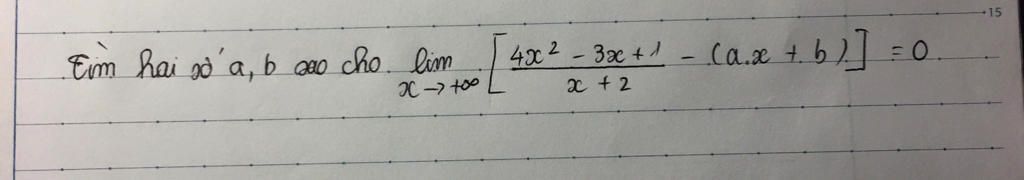 15
Tìm hai số a, b sao cho lim x → +∞ [ (4x² - 3x + 1)/(x + 2) - (a.x + b) ] = 0